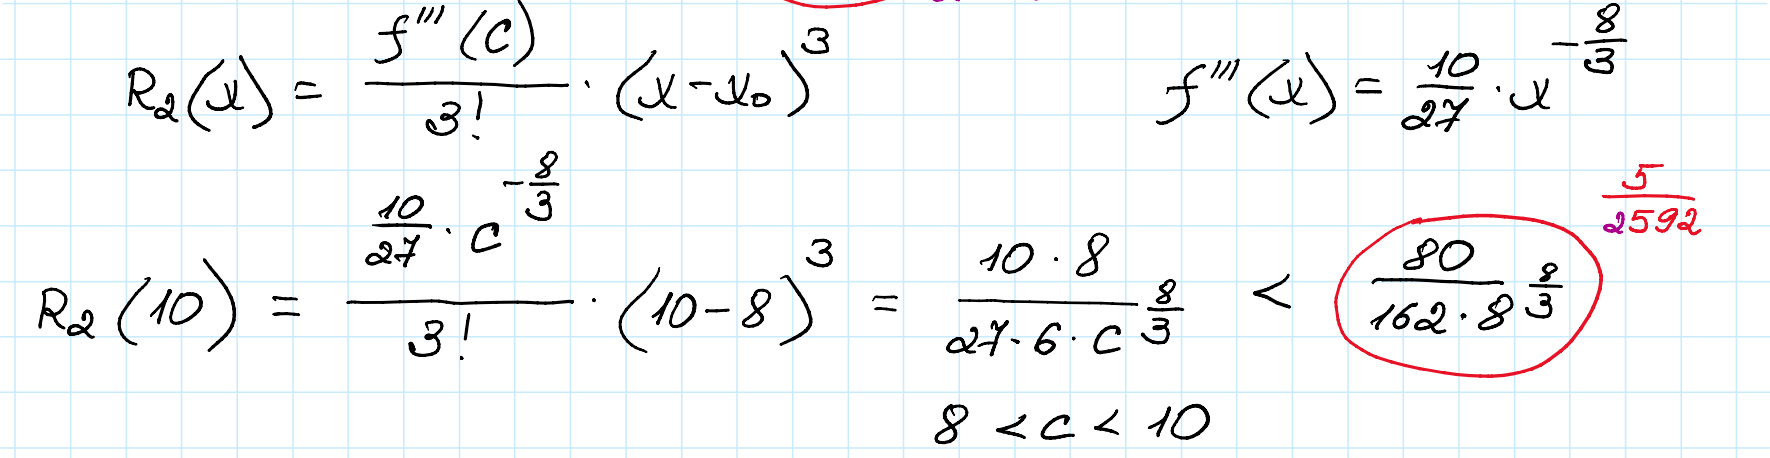 R₂(x) = f'''(c)/3! · (x-x₀)³    f'''(x) = 10/27 · x^(-8/3)
R₂(10) = (10/27 · c^(-8/3))/3! · (10-8)³ = (10·8)/(27·6·c^(8/3)) < 80/(162·8^(8/3))    5/2592
8 < c < 10